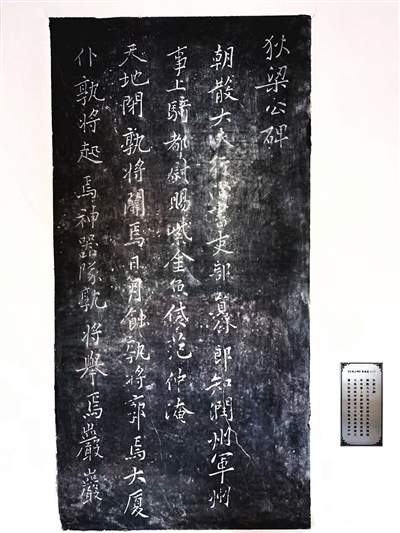 狄梁公碑
朝散大夫行尚書吏部員外郎知潤州軍州
事上騎都尉賜紫金魚袋范仲淹
天地閉孰將闢焉日月蝕孰將廓焉大厦
仆孰將起焉神器隊孰將舉焉巖巖